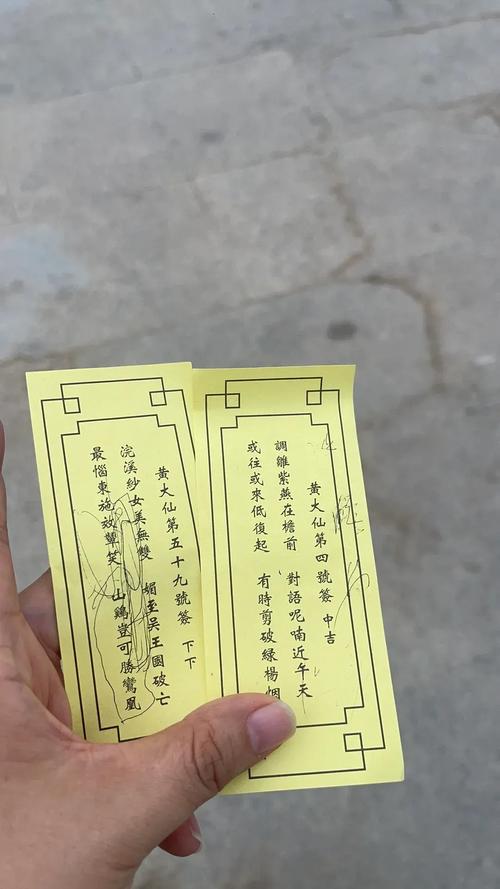 黃大仙第四號簽 中吉
調雛紫燕在檐前 對語呢喃近午天
或往或來低復起 有時剪破綠楊烟
黃大仙第五十九號簽 下下
浣溪紗女美無雙 媚至吳王國破亡
最惱東施效顰笑 山鷄豈可勝鸞凰